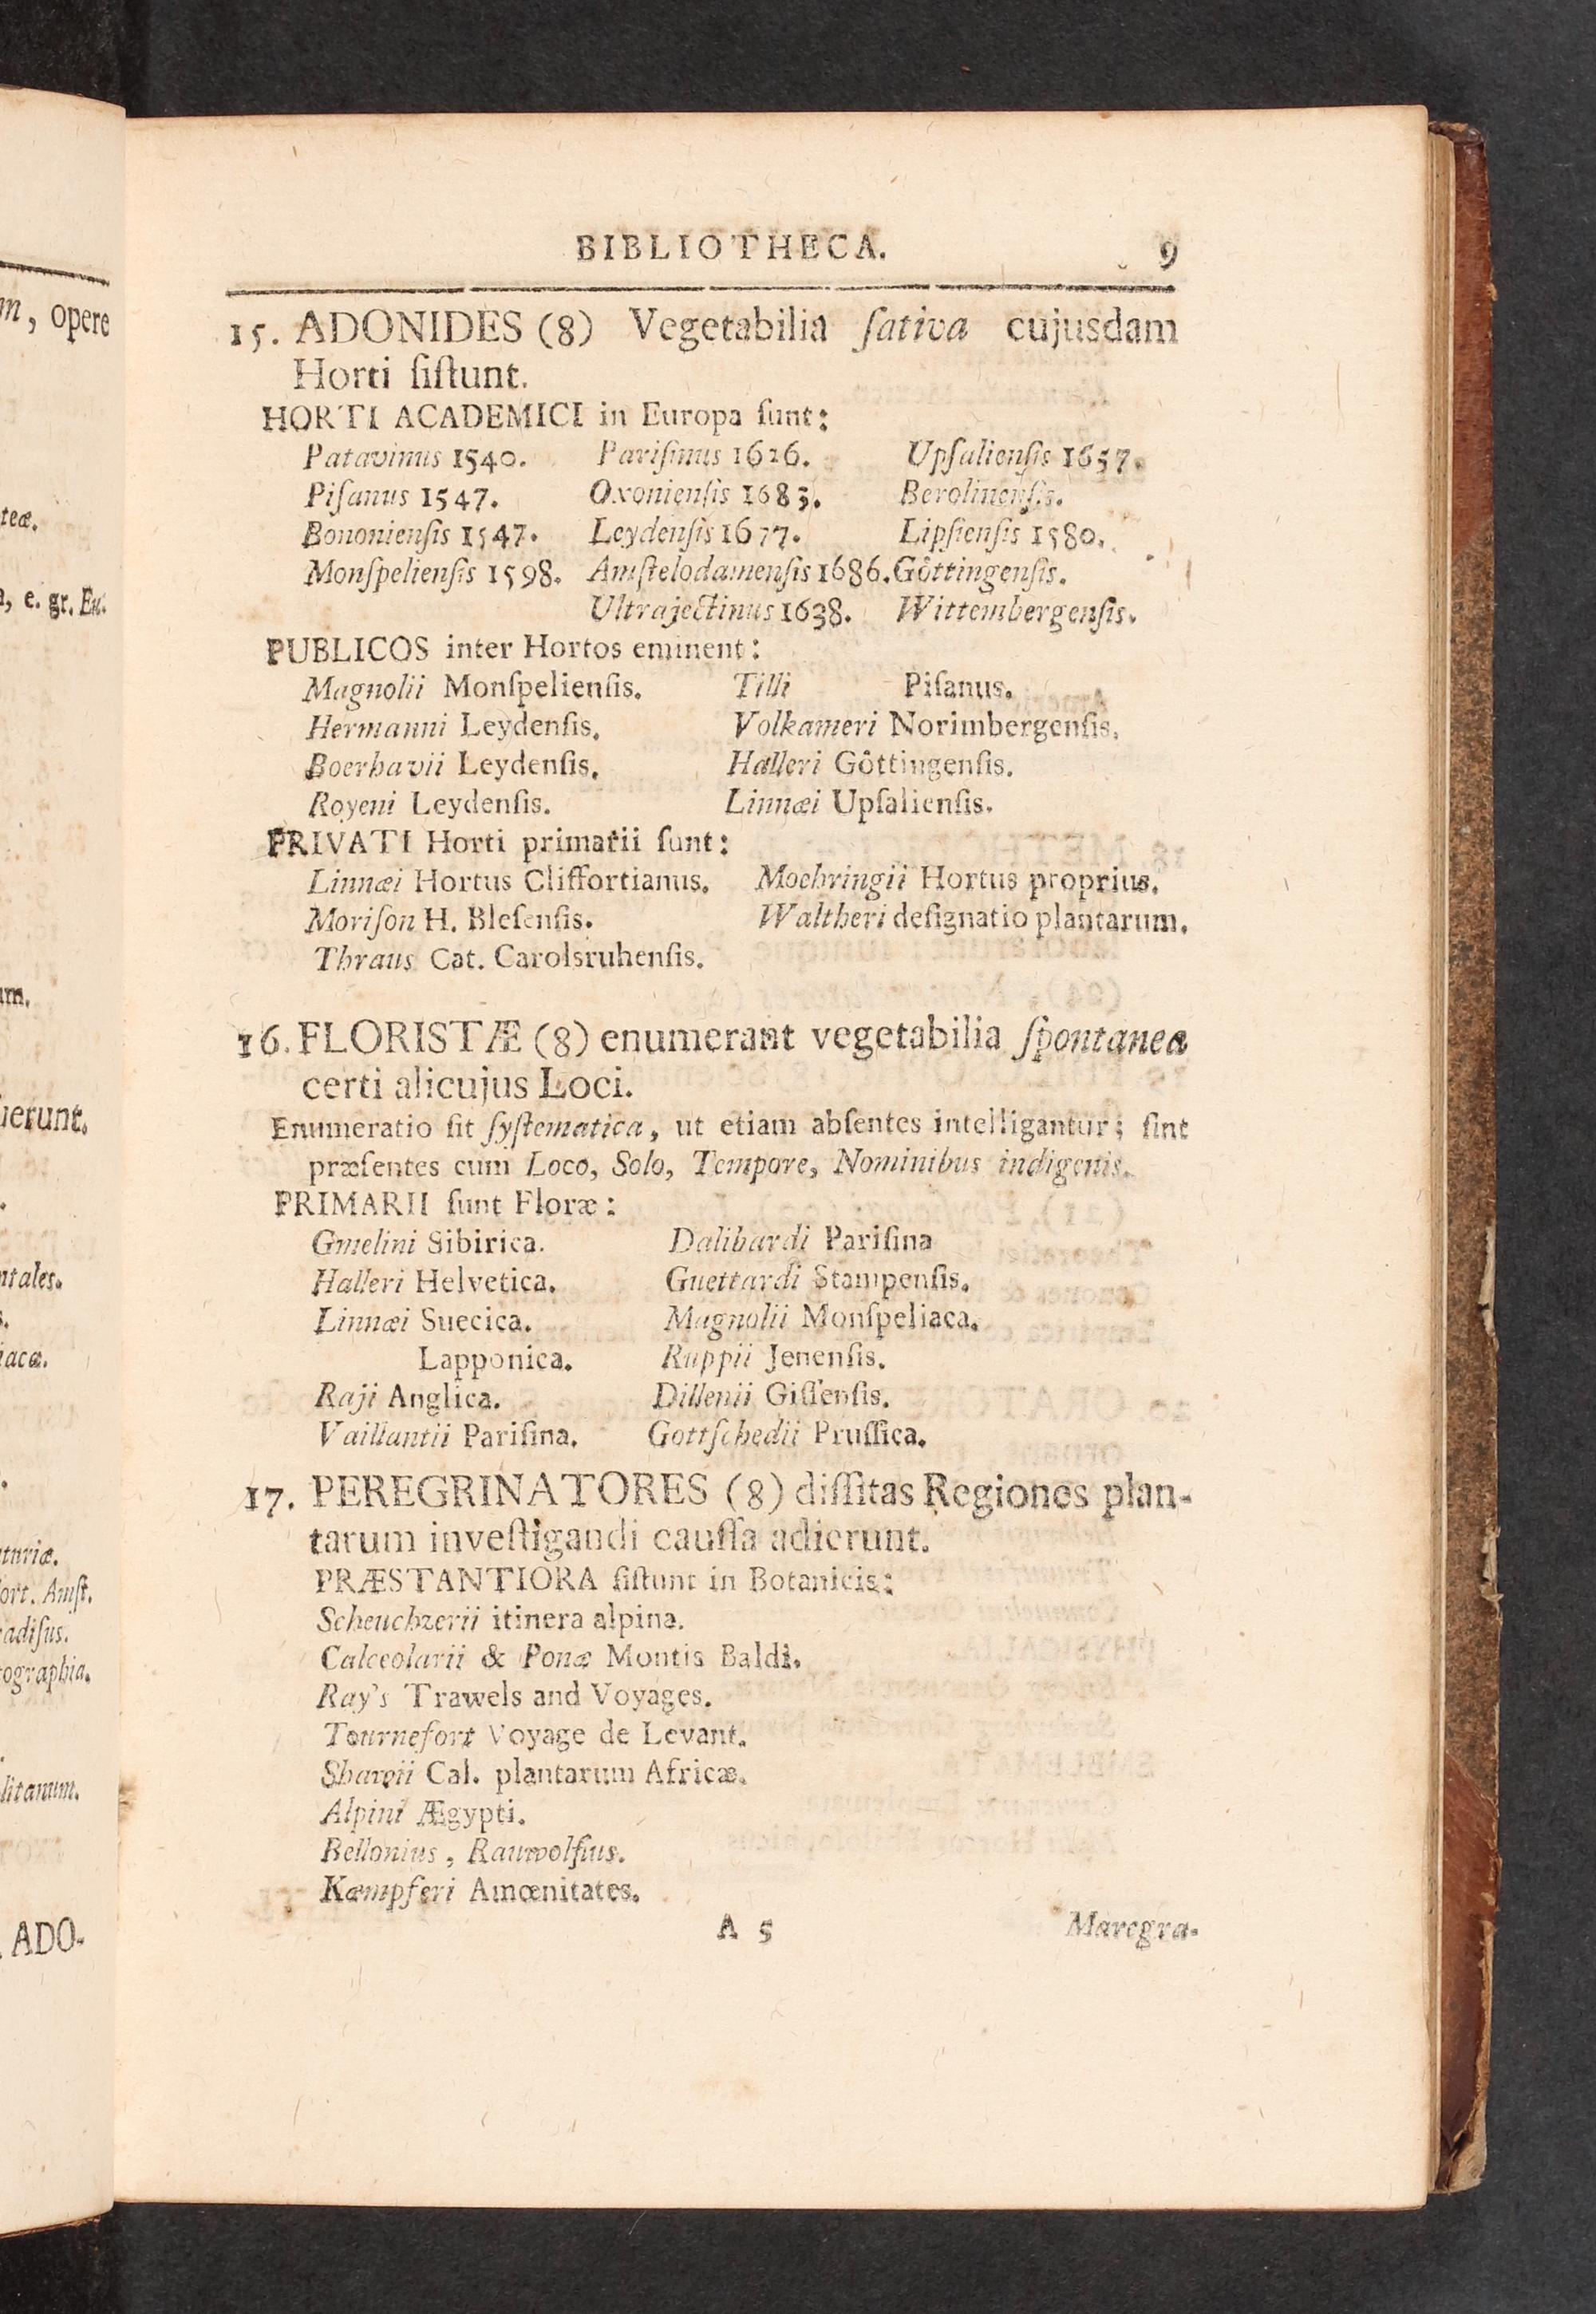 m, opere
teæ.
a, e. gr. Eu.
um.
ierunt.
ntales.
iaca.
ort. Amſt.
radiſus.
tographia.
litanum.
ADO-
BIBLIOTHECA. 9
15. ADONIDES (8) Vegetabilia ſativa cujusdam
Horti ſiſtunt.
HORTI ACADEMICI in Europa ſunt:
Patavinus 1540. Pariſinus 1626. Upſalienſis 1657.
Piſanus 1547. Oxonienſis 1683. Berolinenſis.
Bononienſis 1547. Leydenſis 1677. Lipſienſis 1580.
Monſpelienſis 1598. Amſtelodamenſis 1686. Gôttingenſis.
Ultrajectinus 1638. Wittembergenſis.
PUBLICOS inter Hortos eminent:
Magnolii Monſpelienſis. Tilli Piſanus.
Hermanni Leydenſis. Volkameri Norimbergenſis.
Boerhavii Leydenſis. Halleri Gôttingenſis.
Royeni Leydenſis. Linnæi Upſalienſis.
PRIVATI Horti primarii ſunt:
Linnæi Hortus Cliffortianus. Moehringii Hortus proprius.
Moriſon H. Bleſenſis. Waltheri deſignatio plantarum.
Thraus Cat. Carolsruhenſis.
16. FLORISTÆ (8) enumerant vegetabilia ſpontanea
certi alicujus Loci.
Enumeratio ſit ſyſtematica, ut etiam abſentes intelligantur; ſint
præſentes cum Loco, Solo, Tempore, Nominibus indigenis.
PRIMARII ſunt Floræ:
Gmelini Sibirica. Dalibardi Pariſina
Halleri Helvetica. Guettardi Stampenſis.
Linnæi Suecica. Magnolii Monſpeliaca.
Lapponica. Ruppii Jenenſis.
Raji Anglica. Dillenii Giſſenſis.
Vaillantii Pariſina. Gottſchedii Pruſſica.
17. PEREGRINATORES (8) diſſitas Regiones plan-
tarum inveſtigandi cauſſa adierunt.
PRÆSTANTIORA ſiſtunt in Botanicis:
Scheuchzerii itinera alpina.
Calceolarii & Ponæ Montis Baldi.
Ray's Trawels and Voyages.
Tournefort Voyage de Levant.
Shavii Cal. plantarum Africæ.
Alpini Ægypti.
Bellonius, Rauwolfius.
Kæmpferi Amœnitates.
A 5 Marcgra-